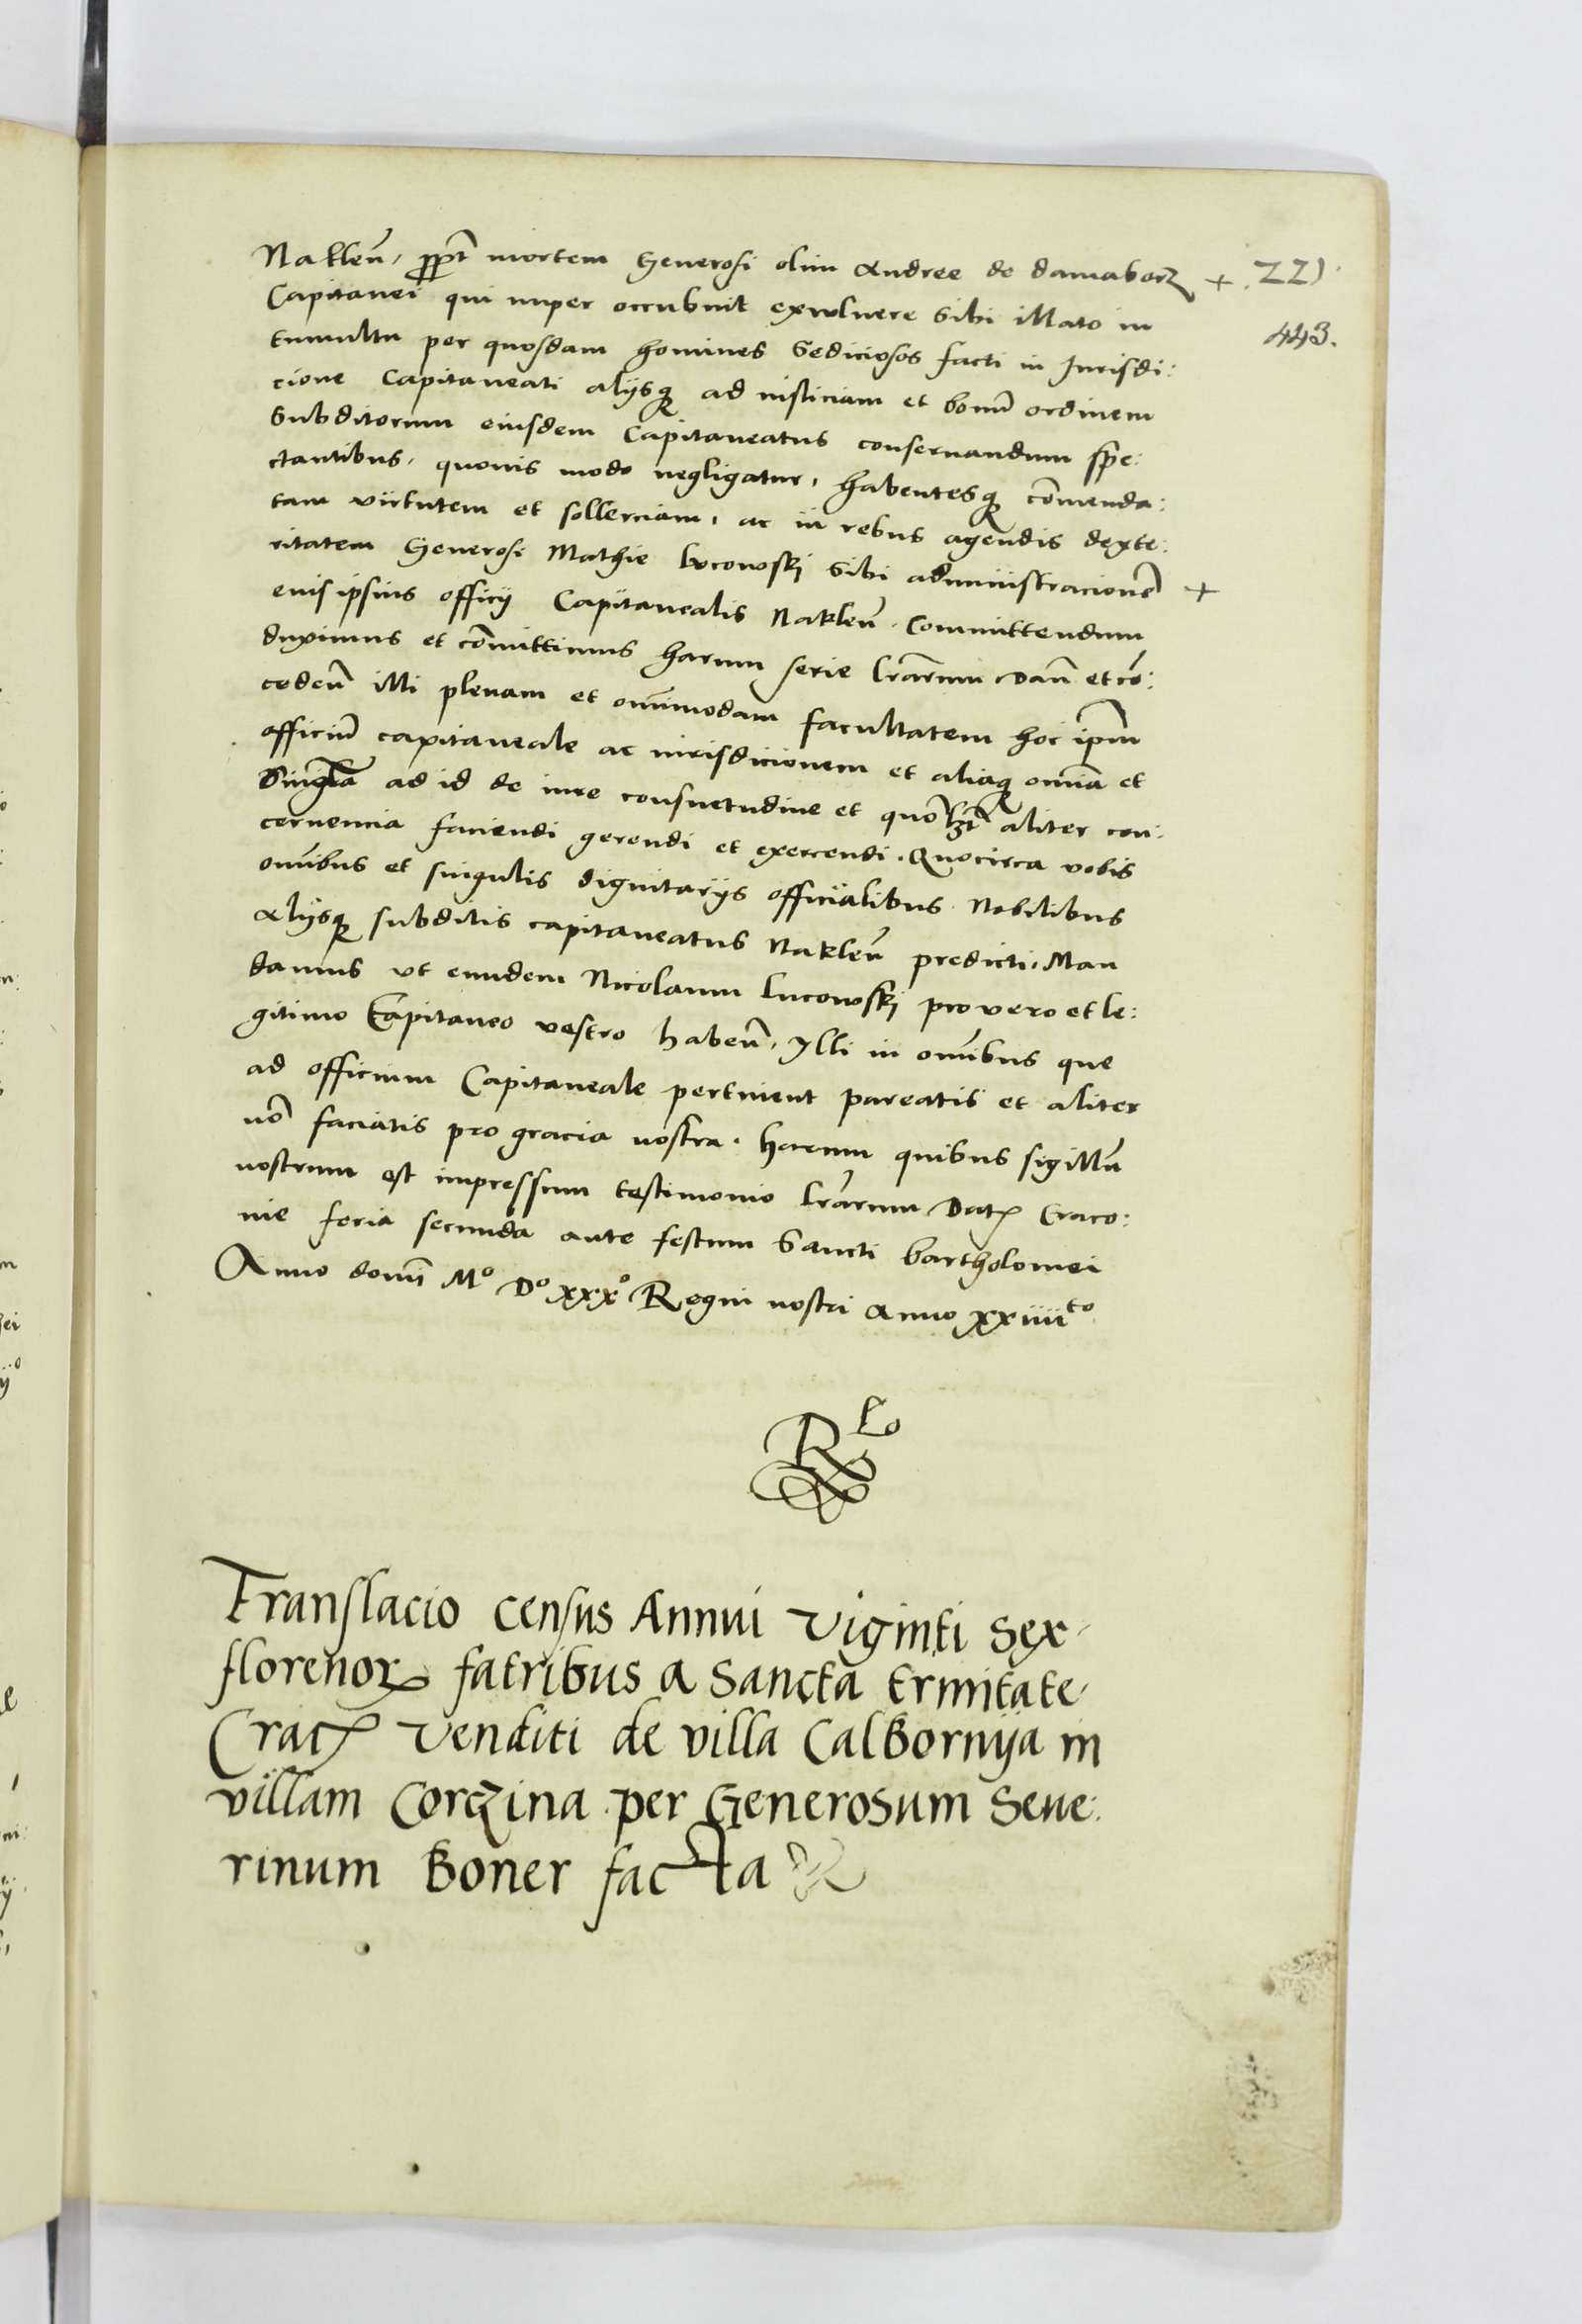 Naklen̄, propt̄ mortem Generosi olim Andree de damaborz + ZZ).
Capitanei qui nuper occubuit exvulnere Sibi illato in
443.
tumultu per quosdam homines Sediciosos facti in Jurisdi:
cione Capitaneati alijsq ad iusticiam et bonū ordinem
Subditorum eiusdem Capitaneatus conseruandum spe:
ctantibus, quouis modo negligatur, habentesq cōmenda:
tam virtutem et sollerciam, ac in rebus agendis dexte:
ritatem Generosi Mathie Locowskj Sibi administracionē +
euisipsius officij Capitanealis Naklen̄. Committendum
duximus et cōmittimus harum serie lr̄arum Dan̄ et cō:
ceden̄ illi plenam et omnimodam facultatem hoc ipm̄
officiū capitaneale ac iurisdicionem et aliaq omīa et
Singl̄a ad id de iure consuetudine et quōlꝫt aliter con:
cernencia faciendi gerendi et exercendi. Quocirca vobis
omībus et singulis dignitarijs officialibus Nobilibus
Alijsq subditis capitaneatus Naklen̄ predicti, Man
damus vt eundem Nicolaum Lucowskj pro vero et le:
gitimo Capitaneo vestro haben̄, Illi in omībus que
ad officium Capitaneale pertinent pareatis et aliter
nō faciatis pro gracia nostra. Harum quibus sigillū
nostrum est impressum testimonio lr̄arum Datꝭ Craco:
nie feria secunda ante festum Sancti bartholomei
Anno domī Mº Dº xxxº Regni nostri Anno xxiiiito
Translacio census Annui Viginti Sex
florenoꝝ fatribus a Sancta trinitate
Cracꝭ venditi de villa Calbornija in
villam Corczina per Generosum Seue:
rinum Boner facta